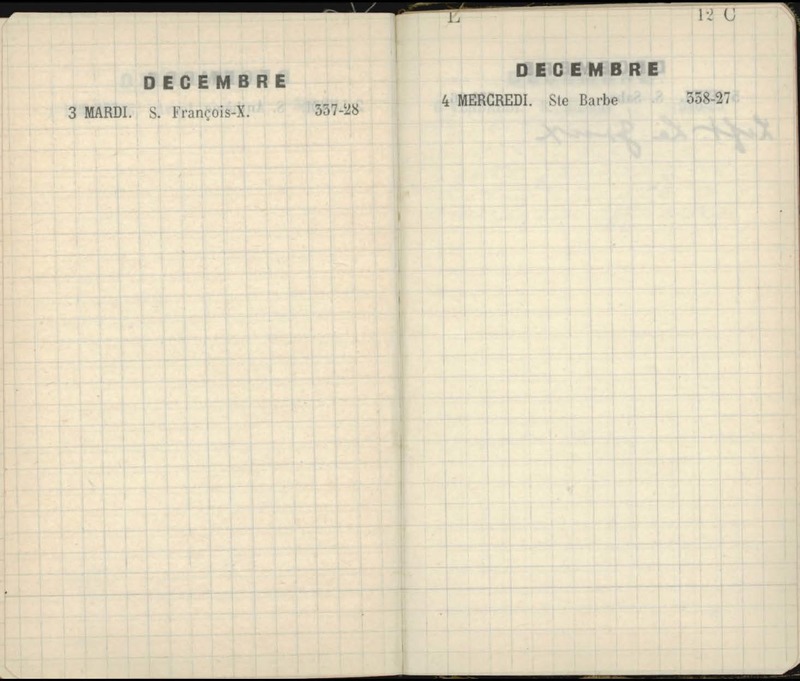 DECEMBRE
3 MARDI. S. François-X. 337-28
E 12 C
DECEMBRE
4 MERCREDI. Ste Barbe 338-27